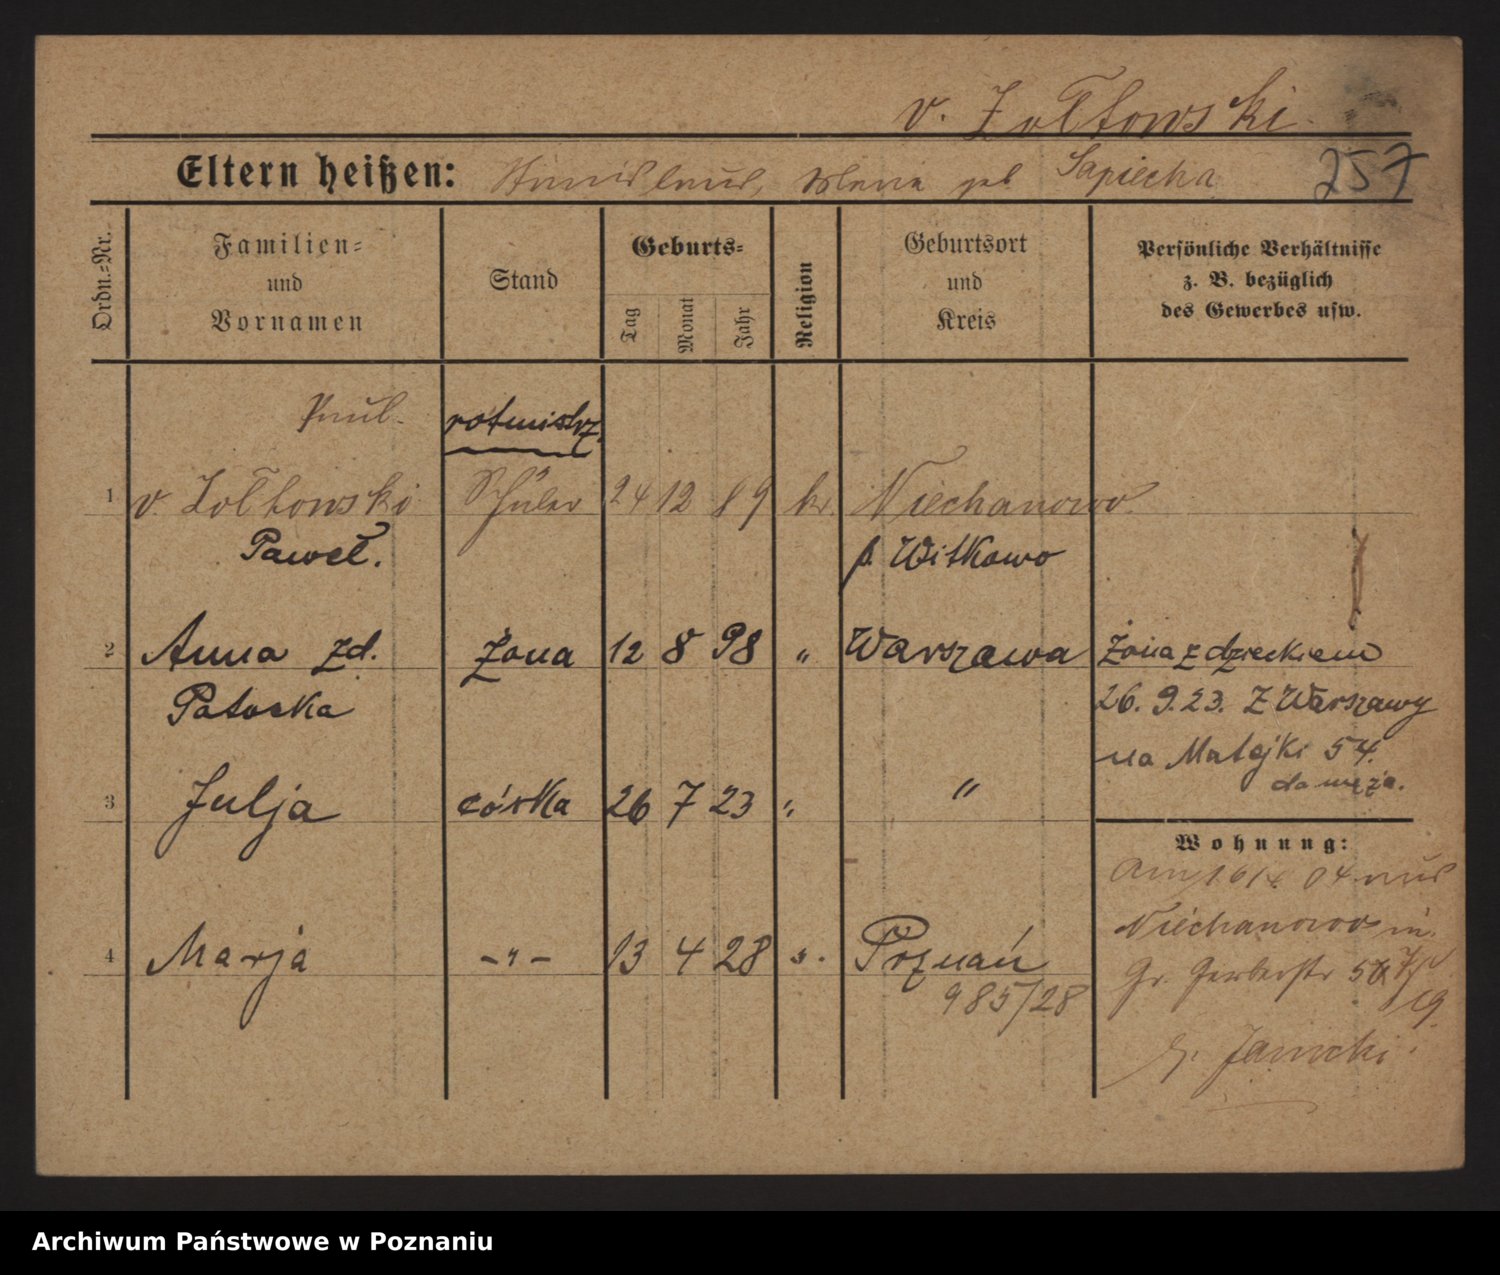 v. Zoltowski
Eltern heißen: Stanislaus, geb Sapiecha 257
Ordn.-Nr.
Familien- und Vornamen
Stand
Geburts-
Tag
Monat
Jahr
Religion
Geburtsort und Kreis
Persönliche Verhältnisse
z. B. bezüglich
des Gewerbes usw.
Paul. rotmistrz
1 v. Zoltowski Schüler 24 12 89 k. Niechanowo
Paweł. p. Witkowo
2 Anna zd. Żona 12 8 98 " Warszawa
Patocka
3 Julja córka 26 7 23 " "
4 Marja -"- 13 4 28 ". Poznań
985/28
Żona z dzieckiem
26.9.23. z Warszawy
na Matejki 54.
do męża.
Wohnung:
Am 16/4 04 aus
Niechanowo in
Gr. Gerberstr
Janicki
Archiwum Państwowe w Poznaniu